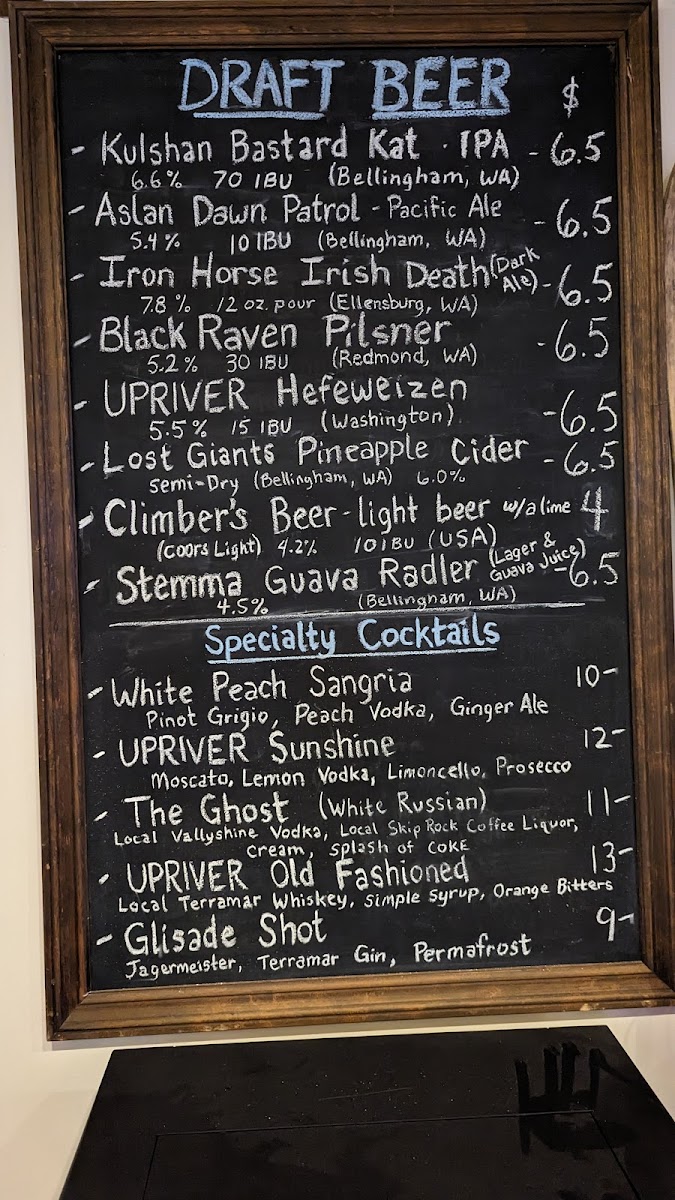 DRAFT BEER $
- Kulshan Bastard Kat · IPA - 6.5
6.6% 70 IBU (Bellingham, WA)
- Aslan Dawn Patrol - Pacific Ale - 6.5
5.4% 10 IBU (Bellingham, WA)
- Iron Horse Irish Death (Dark Ale) - 6.5
7.8% 12 oz. pour (Ellensburg, WA)
- Black Raven Pilsner - 6.5
5.2% 30 IBU (Redmond, WA)
- UPRIVER Hefeweizen - 6.5
5.5% 15 IBU (Washington)
- Lost Giants Pineapple Cider - 6.5
Semi-Dry (Bellingham, WA) 6.0%
- Climber's Beer - light beer w/a lime 4
(Coors Light) 4.2% 10 IBU (USA)
- Stemma Guava Radler (Lager & Guava Juice) - 6.5
4.5% (Bellingham, WA)
Specialty Cocktails
- White Peach Sangria 10-
Pinot Grigio, Peach Vodka, Ginger Ale
- UPRIVER Sunshine 12-
Moscato, Lemon Vodka, Limoncello, Prosecco
- The Ghost (White Russian) 11-
Local Vallyshine Vodka, Local Skip Rock Coffee Liquor,
Cream, splash of COKE
- UPRIVER Old Fashioned 13-
Local Terramar Whiskey, Simple Syrup, Orange Bitters
- Glisade Shot 9-
Jagermeister, Terramar Gin, Permafrost